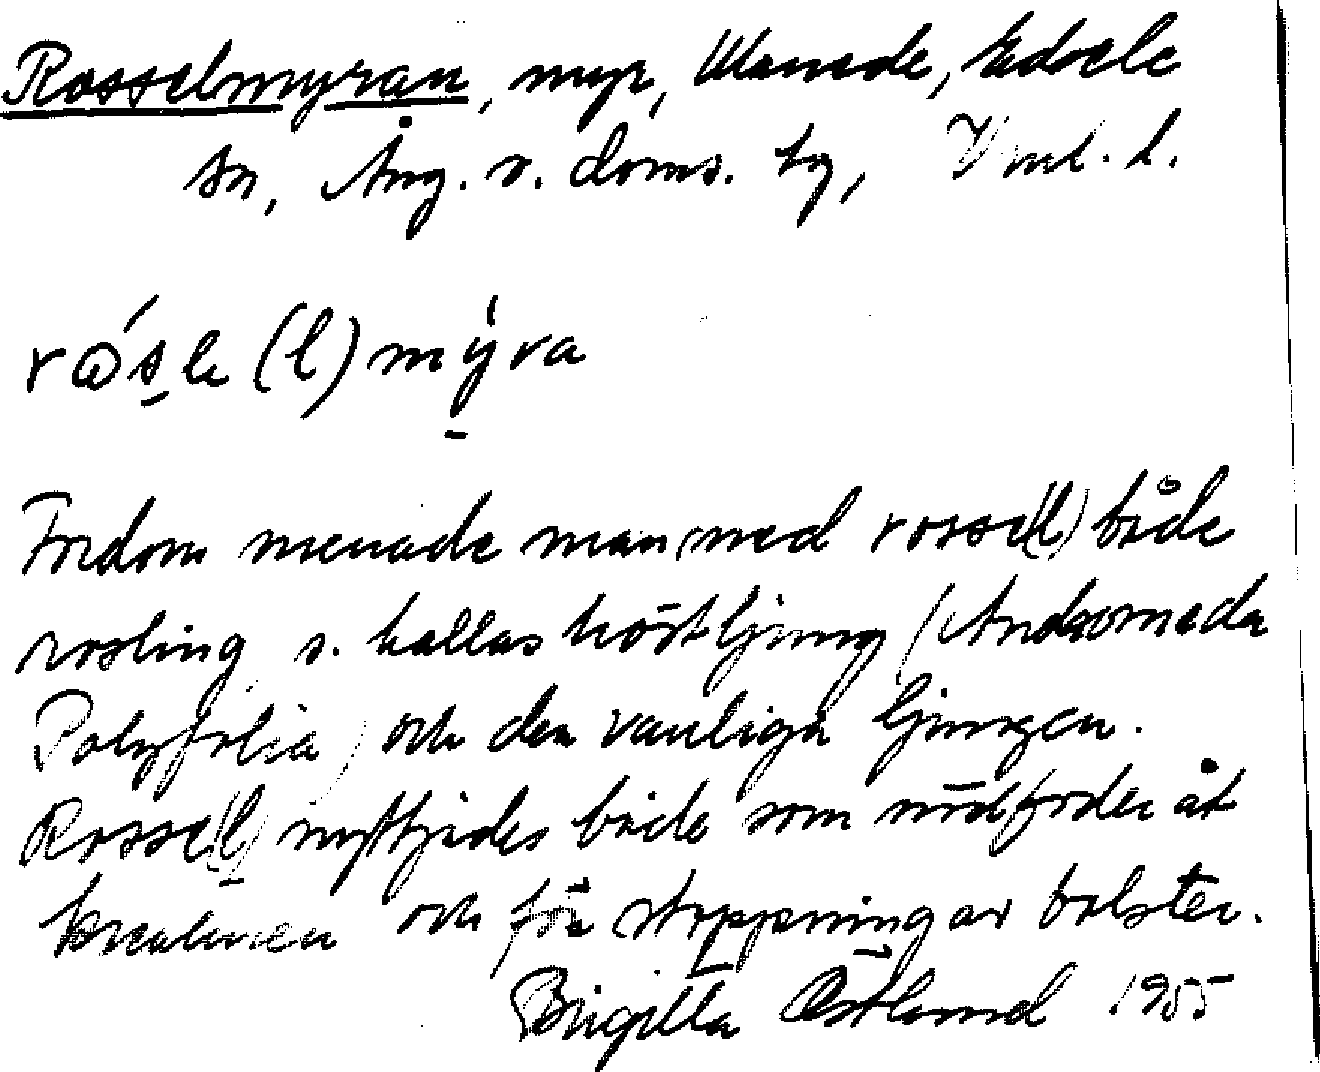 Rosselmyran, myr, Uanede, Edsele
sn, Ång. v. doms. tg, Vnl. l.
rós̱le (l) mýra
Fordom menade man med rosse(l) både
rosling s. kallas höstljung (Andromeda
Polyfolia) och den vanliga ljungen.
Rosse(l) nyttjades både som nödfoder åt
kreaturen och för stoppning av bolster.
Birgitta Östlund 1955